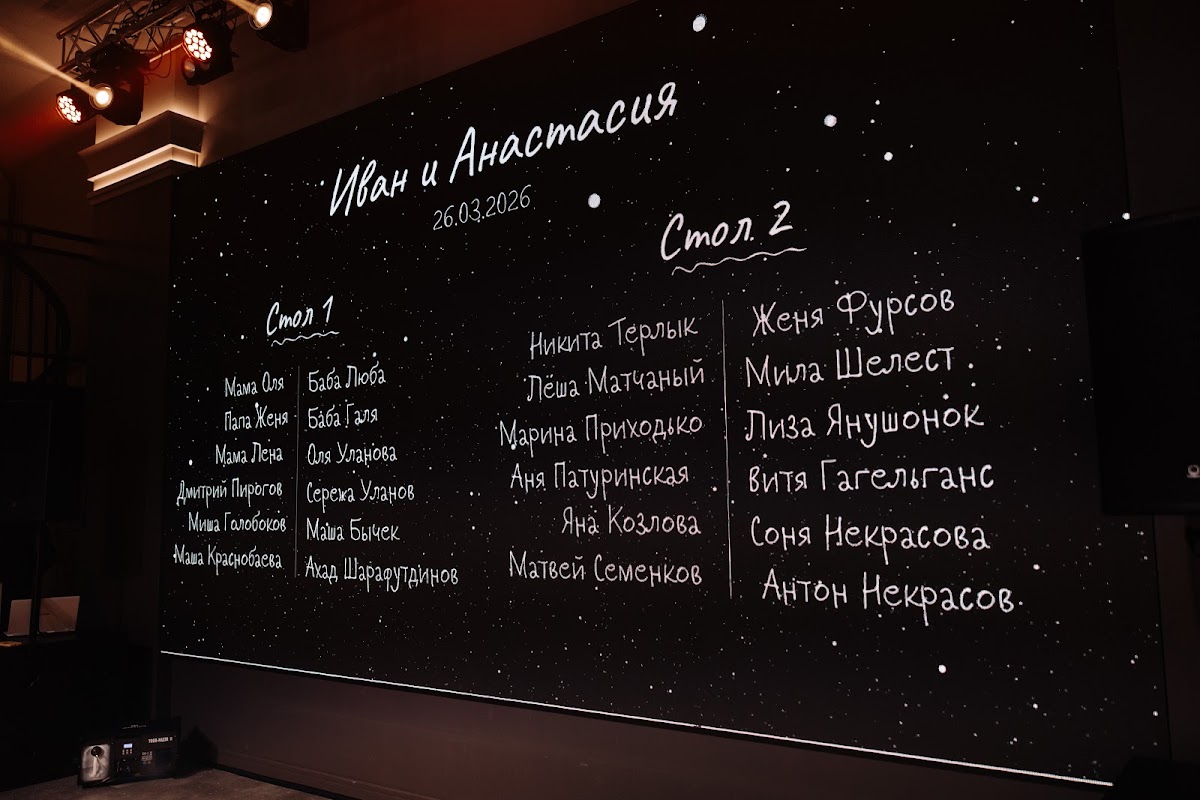 Иван и Анастасия
26.03.2026
Стол 1
Мама Оля
Папа Женя
Мама Лена
Дмитрий Пирогов
Миша Голобоков
Маша Краснобаева
Баба Люба
Баба Галя
Оля Уланова
Сережа Уланов
Маша Бычек
Ахад Шарафутдинов
Стол 2
Никита Терлык
Лёша Матчаный
Марина Приходько
Аня Патуринская
Яна Козлова
Матвей Семенков
Женя Фурсов
Мила Шелест
Лиза Янушонок
Витя Гагельганс
Соня Некрасова
Антон Некрасов